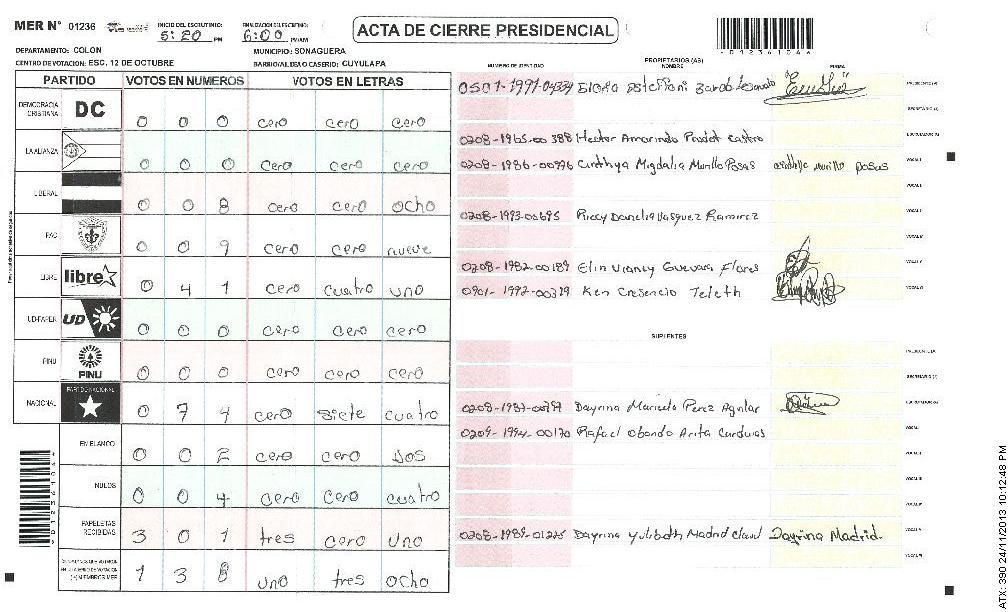 MER N° 01236 INICIO DEL ESCRUTINIO: 5:20 PM FINALIZACIÓN DEL ESCRUTINIO: 6:00 PM/AM ACTA DE CIERRE PRESIDENCIAL
DEPARTAMENTO: COLON MUNICIPIO: SONAGUERA
CENTRO DE VOTACION: ESC. 12 DE OCTUBRE BARRIO/ALDEA O CASERIO: CUYULAPA
PARTIDO VOTOS EN NUMEROS VOTOS EN LETRAS
DEMOCRACIA CRISTIANA DC 0 0 0 cero cero cero
LA ALIANZA 0 0 0 cero cero cero
LIBERAL 0 0 8 cero cero ocho
PAC 0 0 9 cero cero nueve
LIBRE libre 0 4 1 cero cuatro uno
UD-FAPER UD 0 0 0 cero cero cero
PINU PINU 0 0 0 cero cero cero
NACIONAL PARTIDO NACIONAL 0 7 4 cero siete cuatro
EN BLANCO 0 0 2 cero cero dos
NULOS 0 0 4 cero cero cuatro
PAPELETAS RECIBIDAS 3 0 1 tres cero uno
(+) MIEMBROS MER 1 3 8 uno tres ocho
PROPIETARIOS (AS)
NUMERO DE IDENTIDAD NOMBRE FIRMA
0501-1991-04334
0208-1965-00388 Hector Amarindo Castro
0208-1986-00976 Cinthya Migdalia Murillo Posas Murillo posas
0208-1993-00695 Riccy Danelia Vasquez Ramirez
0208-1982-00189 Elin Guevara Flores
0901-1992-00319 Ken Cresencio Teleth
SUPLENTES
Dayrina Maricela Perez Aguilar
0209-1994-00170 Rafael Obando Arita
0208-1989-01225 Dayrina Yulibeth Madrid Dayrina Madrid.
ATX: 390 24/11/2013 10:12:48 PM